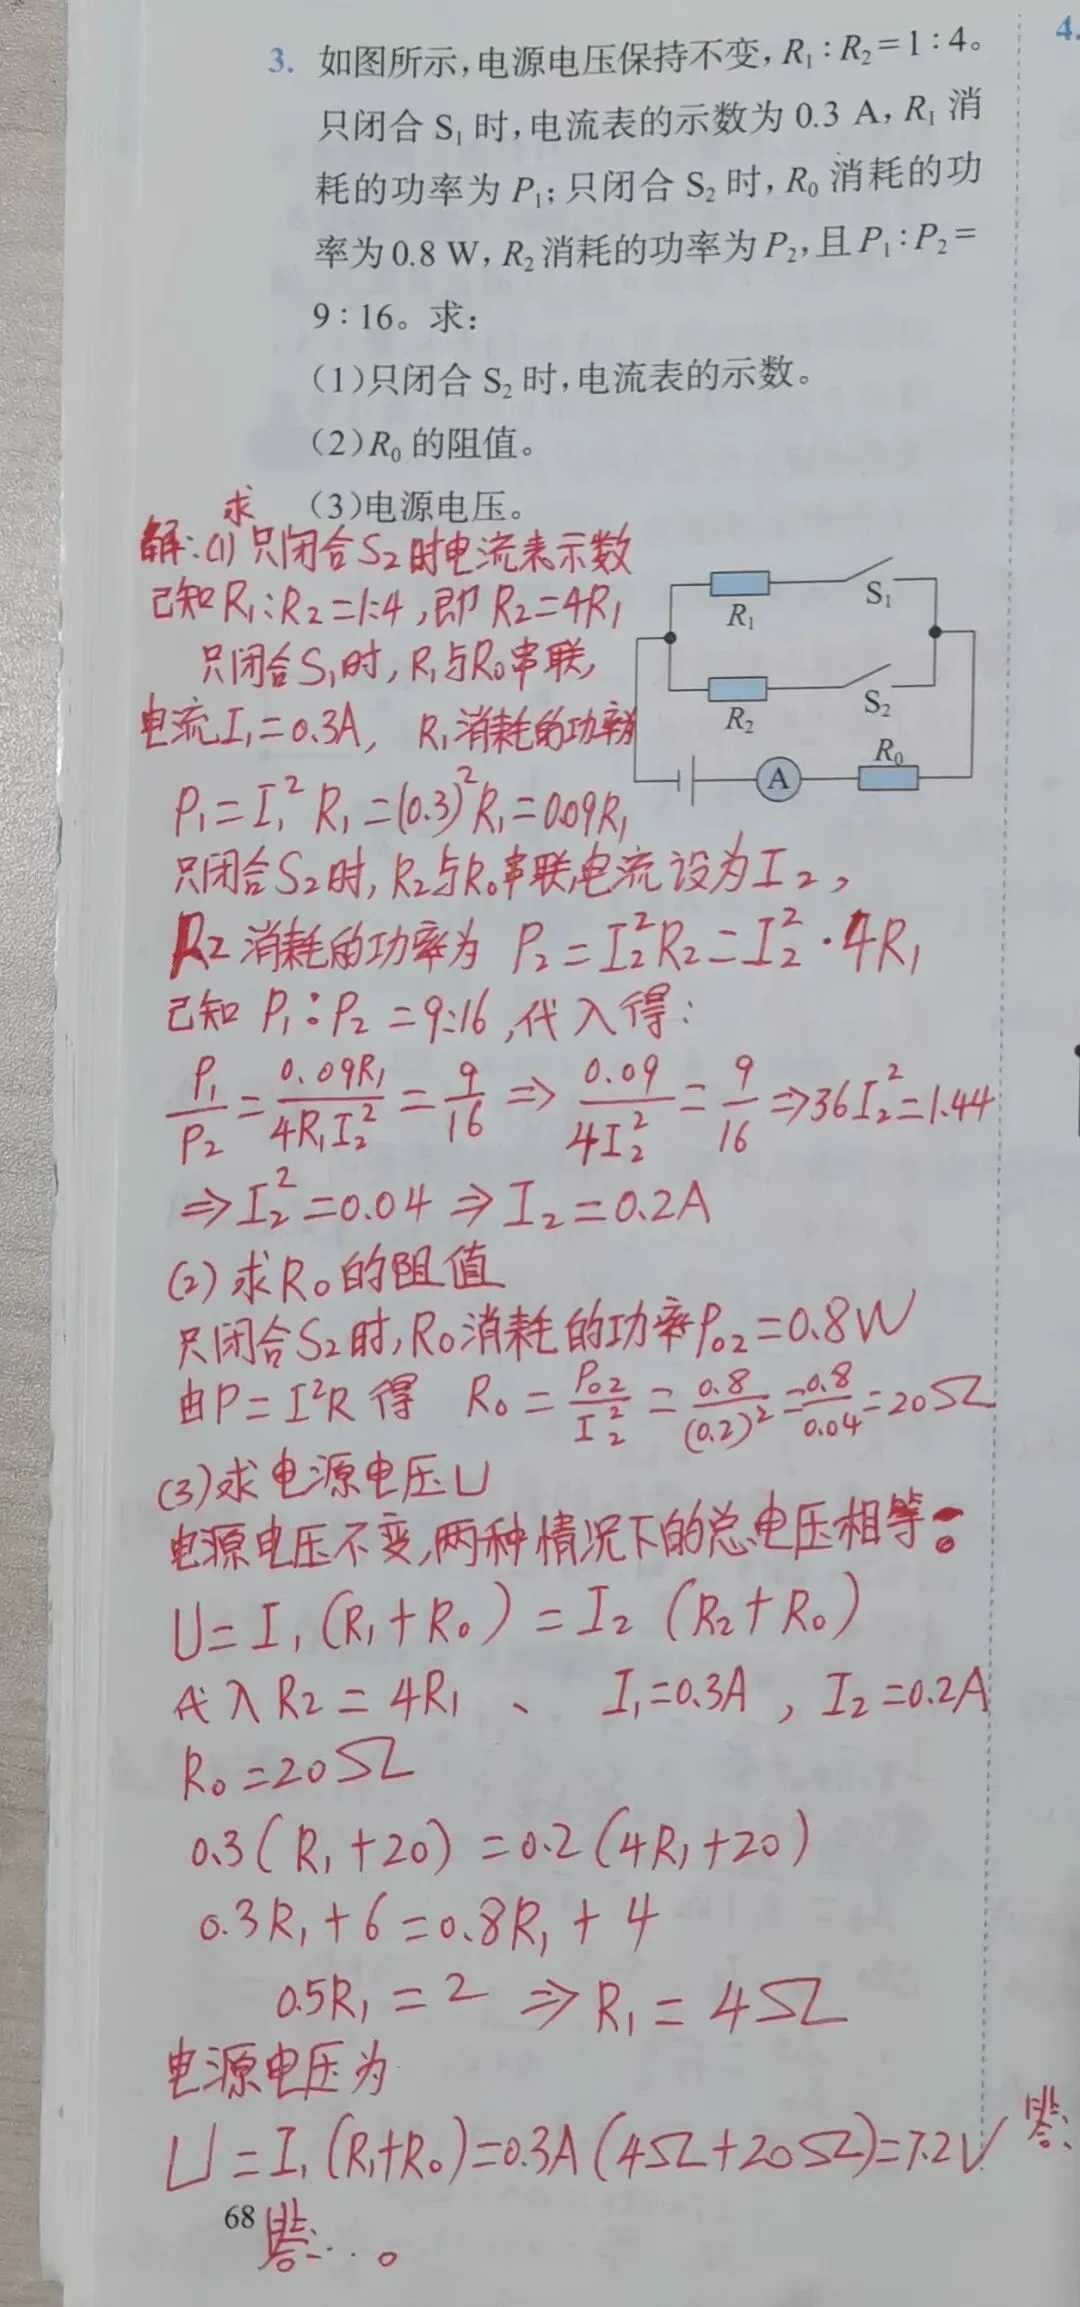 3. 如图所示,电源电压保持不变,R₁:R₂=1:4。
只闭合 S₁ 时,电流表的示数为 0.3 A,R₁ 消
耗的功率为 P₁;只闭合 S₂ 时,R₀ 消耗的功
率为 0.8 W,R₂ 消耗的功率为 P₂,且 P₁:P₂=
9:16。求:
(1)只闭合 S₂ 时,电流表的示数。
(2)R₀ 的阻值。
(3)电源电压。
解:(1)求只闭合S₂时电流表示数
已知R₁:R₂=1:4,即R₂=4R₁
只闭合S₁时,R₁与R₀串联,
电流I₁=0.3A, R₁消耗的功率为
P₁=I₁²R₁=(0.3)²R₁=0.09R₁
R₁
S₁
R₂
S₂
R₀
A
只闭合S₂时,R₂与R₀串联,电流设为I₂,
R₂消耗的功率为 P₂=I₂²R₂=I₂²·4R₁
已知 P₁:P₂=9:16,代入得:
P₁/P₂=0.09R₁/4R₁I₂²=9/16⇒0.09/4I₂²=9/16⇒36I₂²=1.44
⇒I₂²=0.04⇒I₂=0.2A
(2)求R₀的阻值
只闭合S₂时,R₀消耗的功率P₀₂=0.8W
由P=I²R得 R₀=P₀₂/I₂²=0.8/(0.2)²=0.8/0.04=20Ω
(3)求电源电压U
电源电压不变,两种情况下的总电压相等:
U=I₁(R₁+R₀)=I₂(R₂+R₀)
代入R₂=4R₁、 I₁=0.3A,I₂=0.2A
R₀=20Ω
0.3(R₁+20)=0.2(4R₁+20)
0.3R₁+6=0.8R₁+4
0.5R₁=2⇒R₁=4Ω
电源电压为
U=I₁(R₁+R₀)=0.3A(4Ω+20Ω)=7.2V 答:
68
答:…。
4.